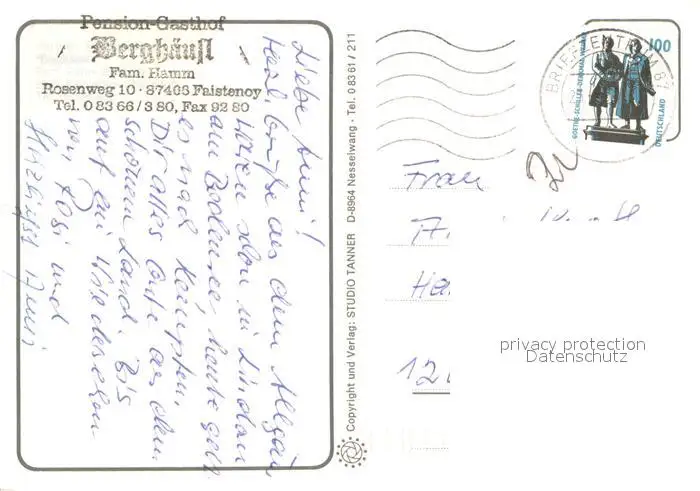 Pension-Gasthof
Berghäusl
Fam. Hamm
Rosenweg 10 · 87463 Faistenoy
Tel. 0 83 66/3 80, Fax 92 80
Liebe
Herzl. Grüße aus dem Allgäu
Waren schon in Lindau
am Bodensee, heute geht
es nach Kempten.
Dir alles Gute aus dem
schönen Land. Bis
auf ein Wiedersehen
Rosi und
Copyright und Verlag: STUDIO TANNER D-8964 Nesselwang · Tel. 0 83 61 / 211
100
GOETHE-SCHILLER-DENKMAL WEIMAR
DEUTSCHLAND
BRIEFZENTRUM 87
Frau
12
privacy protection
Datenschutz